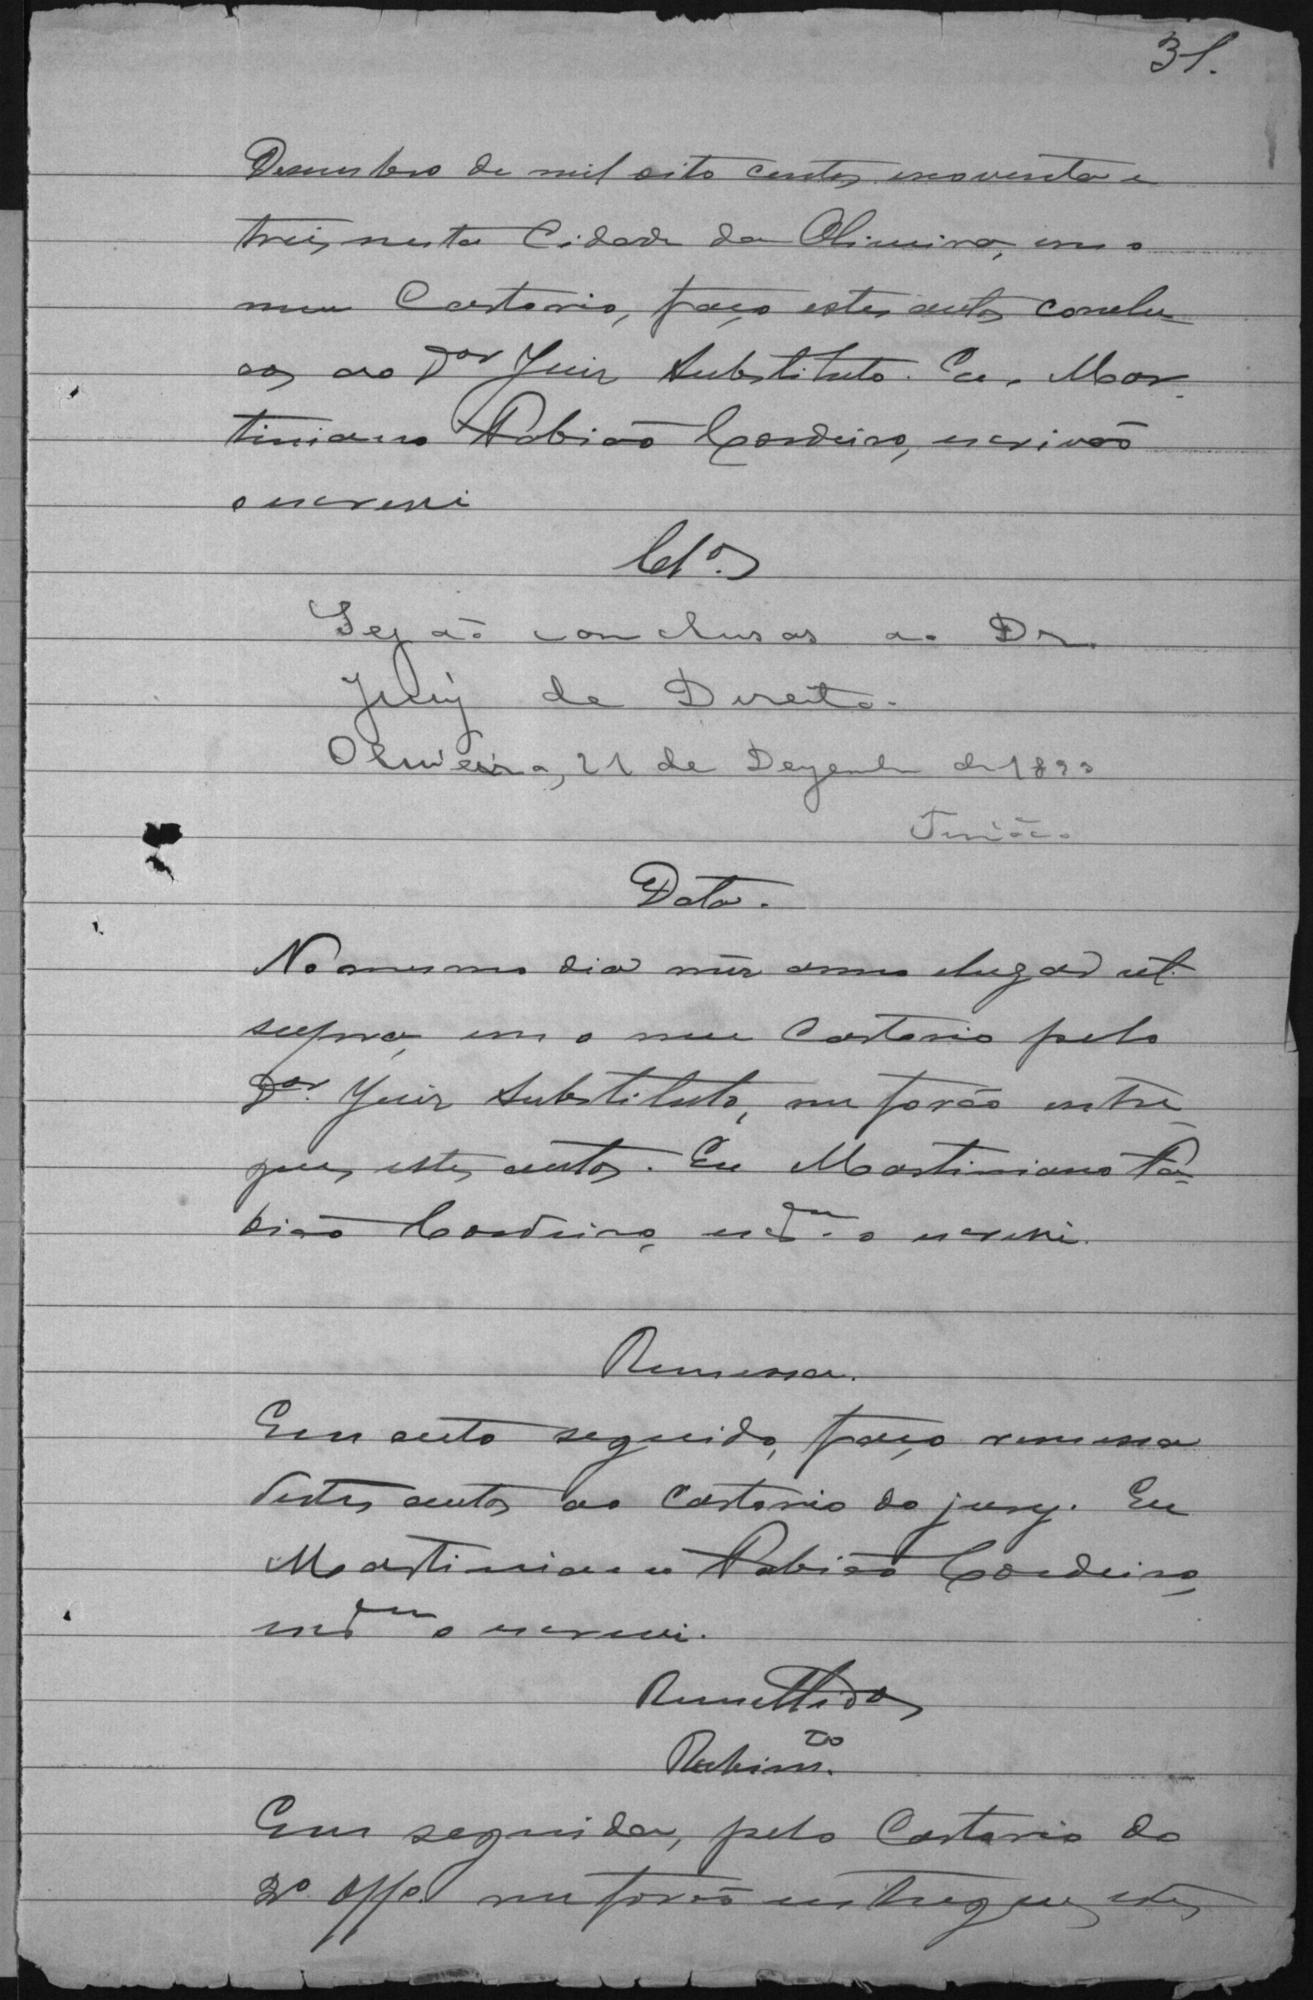 31.
Desembro de mil oito centos enoventa e
treis nesta Cidade da Oliveira, em o
meu Cartorio, faço estes autos conclu
sos ao Dor Juiz Substituto. Eu, Mar-
tiniano Fabião Cordeiro, escrivão
o escrevi
Clos
Sejão conclusos ao Dr.
Juiz de Direito.
Oliveira, 21 de Dezembro de 1893
Data.
No mesmo dia mez anno elugar ut
supra, em o meu Cartorio pelo
Dor. Juiz Substituto, me forão entre
gues estes autos. Eu Martiniano Fa-
bião Cordeiro, escram. o escrevi.
Remessa.
Em acto seguido, faço remessa
destes autos ao Cartorio do jury. Eu
Martiniano Fabião Cordeiro,
o escrevi.
Remettidos
Recbimto.
Em seguida, pelo Cartorio do
2º Offo. me forão entregues estes